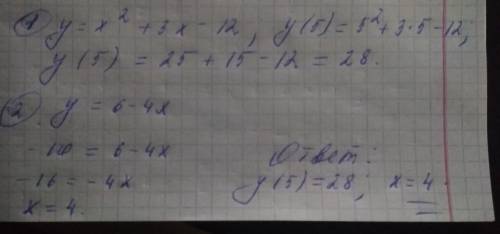 1 y = x² + 3x - 12, y(5) = 5² + 3·5 - 12;
y(5) = 25 + 15 - 12 = 28.
2. y = 6 - 4x
-10 = 6 - 4x
-16 = -4x
x = 4.
Ответ:
y(5) = 28; x = 4